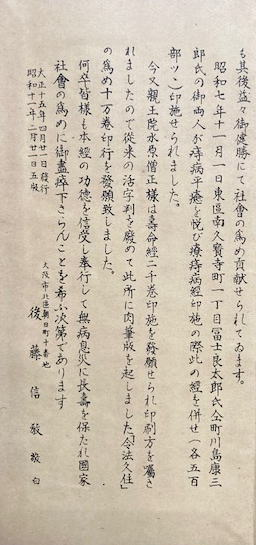 も其後益々御健勝にて社會の爲め貢獻せられてゐます。
昭和七年十一月一日東區南久寶寺町一丁目冨士良太郎氏仝町川島康三
郎氏の御両人が痔病平癒を悦び療痔病經印施の際此の經を併せ（各五百
部ツヽ）印施せられました。
今又親王院水原僧正様は壽命經二千巻印施を發願せられ印刷方を囑さ
れましたので従來の活字判を廢めて此所に肉筆版を起しました「令法久住」
の爲め十万巻印行を發願致しました。
何卒皆様も本經の功徳を信受し奉行して無病息災に長壽を保たれ國家
社會の爲めに御盡瘁下さらんことを希ふ次第であります
大正十五年四月廿一日發行
昭和十一年二月廿一日五版
大阪市北區朝日町十番地
後藤信敎敬白